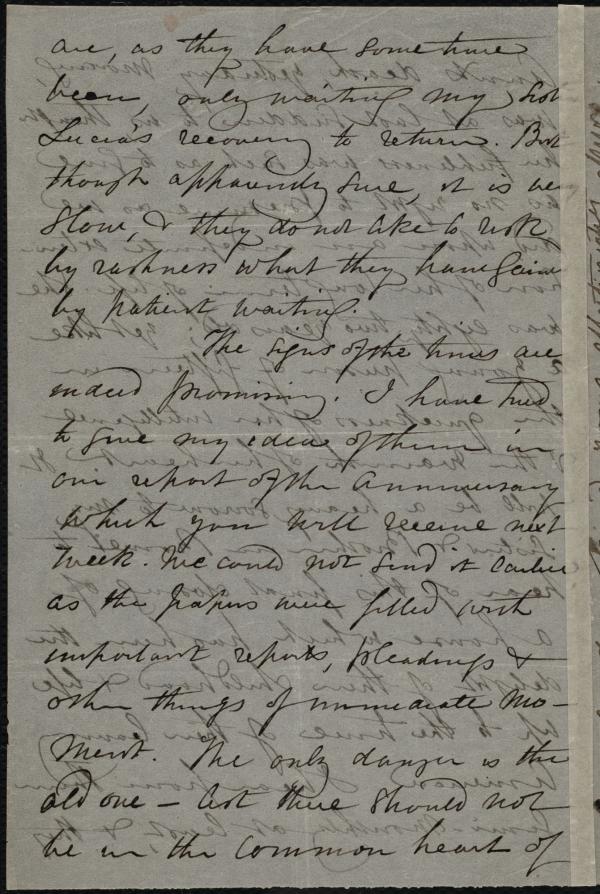 are, as they have some time
been, only waiting my sist
Lucia's recovery to return. But
though apparently sure, it is very
slow, & they do not like to risk
by rashness what they have gain
by patient waiting.
The signs of the times are
indeed promising. I have tried
to give my idea of them in
our report of the Anniversary
which you will receive next
week. We could not send it earlier
as the papers were filled with
important reports, pleadings &
other things of immediate mo-
ment. The only danger is the
old one — lest there should not
be in the common heart of